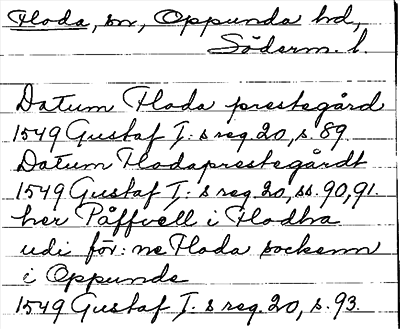 Floda, sn, Oppunda hd,
Söderm. l.
Datum Floda prestegård
1549 Gustaf I:s reg. 20, s. 89.
Datum Flodaprestegårdt
1549 Gustaf I:s reg. 20, ss. 90, 91.
her Påffvell i Flodha
udi för:ne Floda sockenn
i Oppunde
1549 Gustaf I:s reg. 20, s. 93.